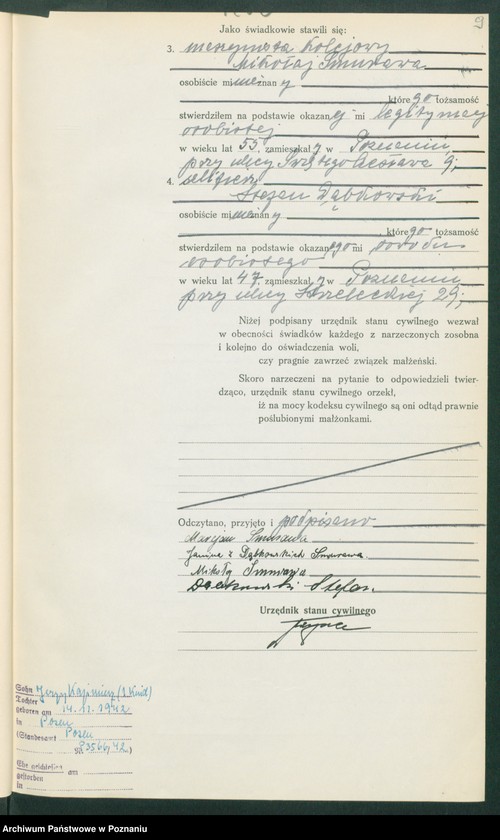 9
Jako świadkowie stawili się:
3. maszynista kolejowy
Mikołaj Smurawa
osobiście mi nieznany
którego tożsamość
stwierdziłem na podstawie okazanej mi legitymacji
osobistej
w wieku lat 55, zamieszkały w Poznaniu,
przy ulicy Świętego Czesława 9;
4. szlifierz
Stefan Dąbkowski
osobiście mi nieznany
którego tożsamość
stwierdziłem na podstawie okazanego mi dowodu
osobistego
w wieku lat 47, zamieszkały w Poznaniu
przy ulicy Strzeleckiej 29;
Niżej podpisany urzędnik stanu cywilnego wezwał
w obecności świadków każdego z narzeczonych zosobna
i kolejno do oświadczenia woli,
czy pragnie zawrzeć związek małżeński.
Skoro narzeczeni na pytanie to odpowiedzieli twier-
dząco, urzędnik stanu cywilnego orzekł,
iż na mocy kodeksu cywilnego są oni odtąd prawnie
poślubionymi małżonkami.
Odczytano, przyjęto i podpisano
Marjan Smurawa
Janina z Dąbkowskich Smurawa.
Mikołaj Smurawa
Dąbkowski Stefan.
Urzędnik stanu cywilnego
Sohn Jerzy Kazimierz (1. Kind)
Tochter
geboren am 14.12.1942
in Posen
(Standesamt Posen
Nr. 83566/42)
Ehe geschieden am
gestorben
in
Archiwum Państwowe w Poznaniu